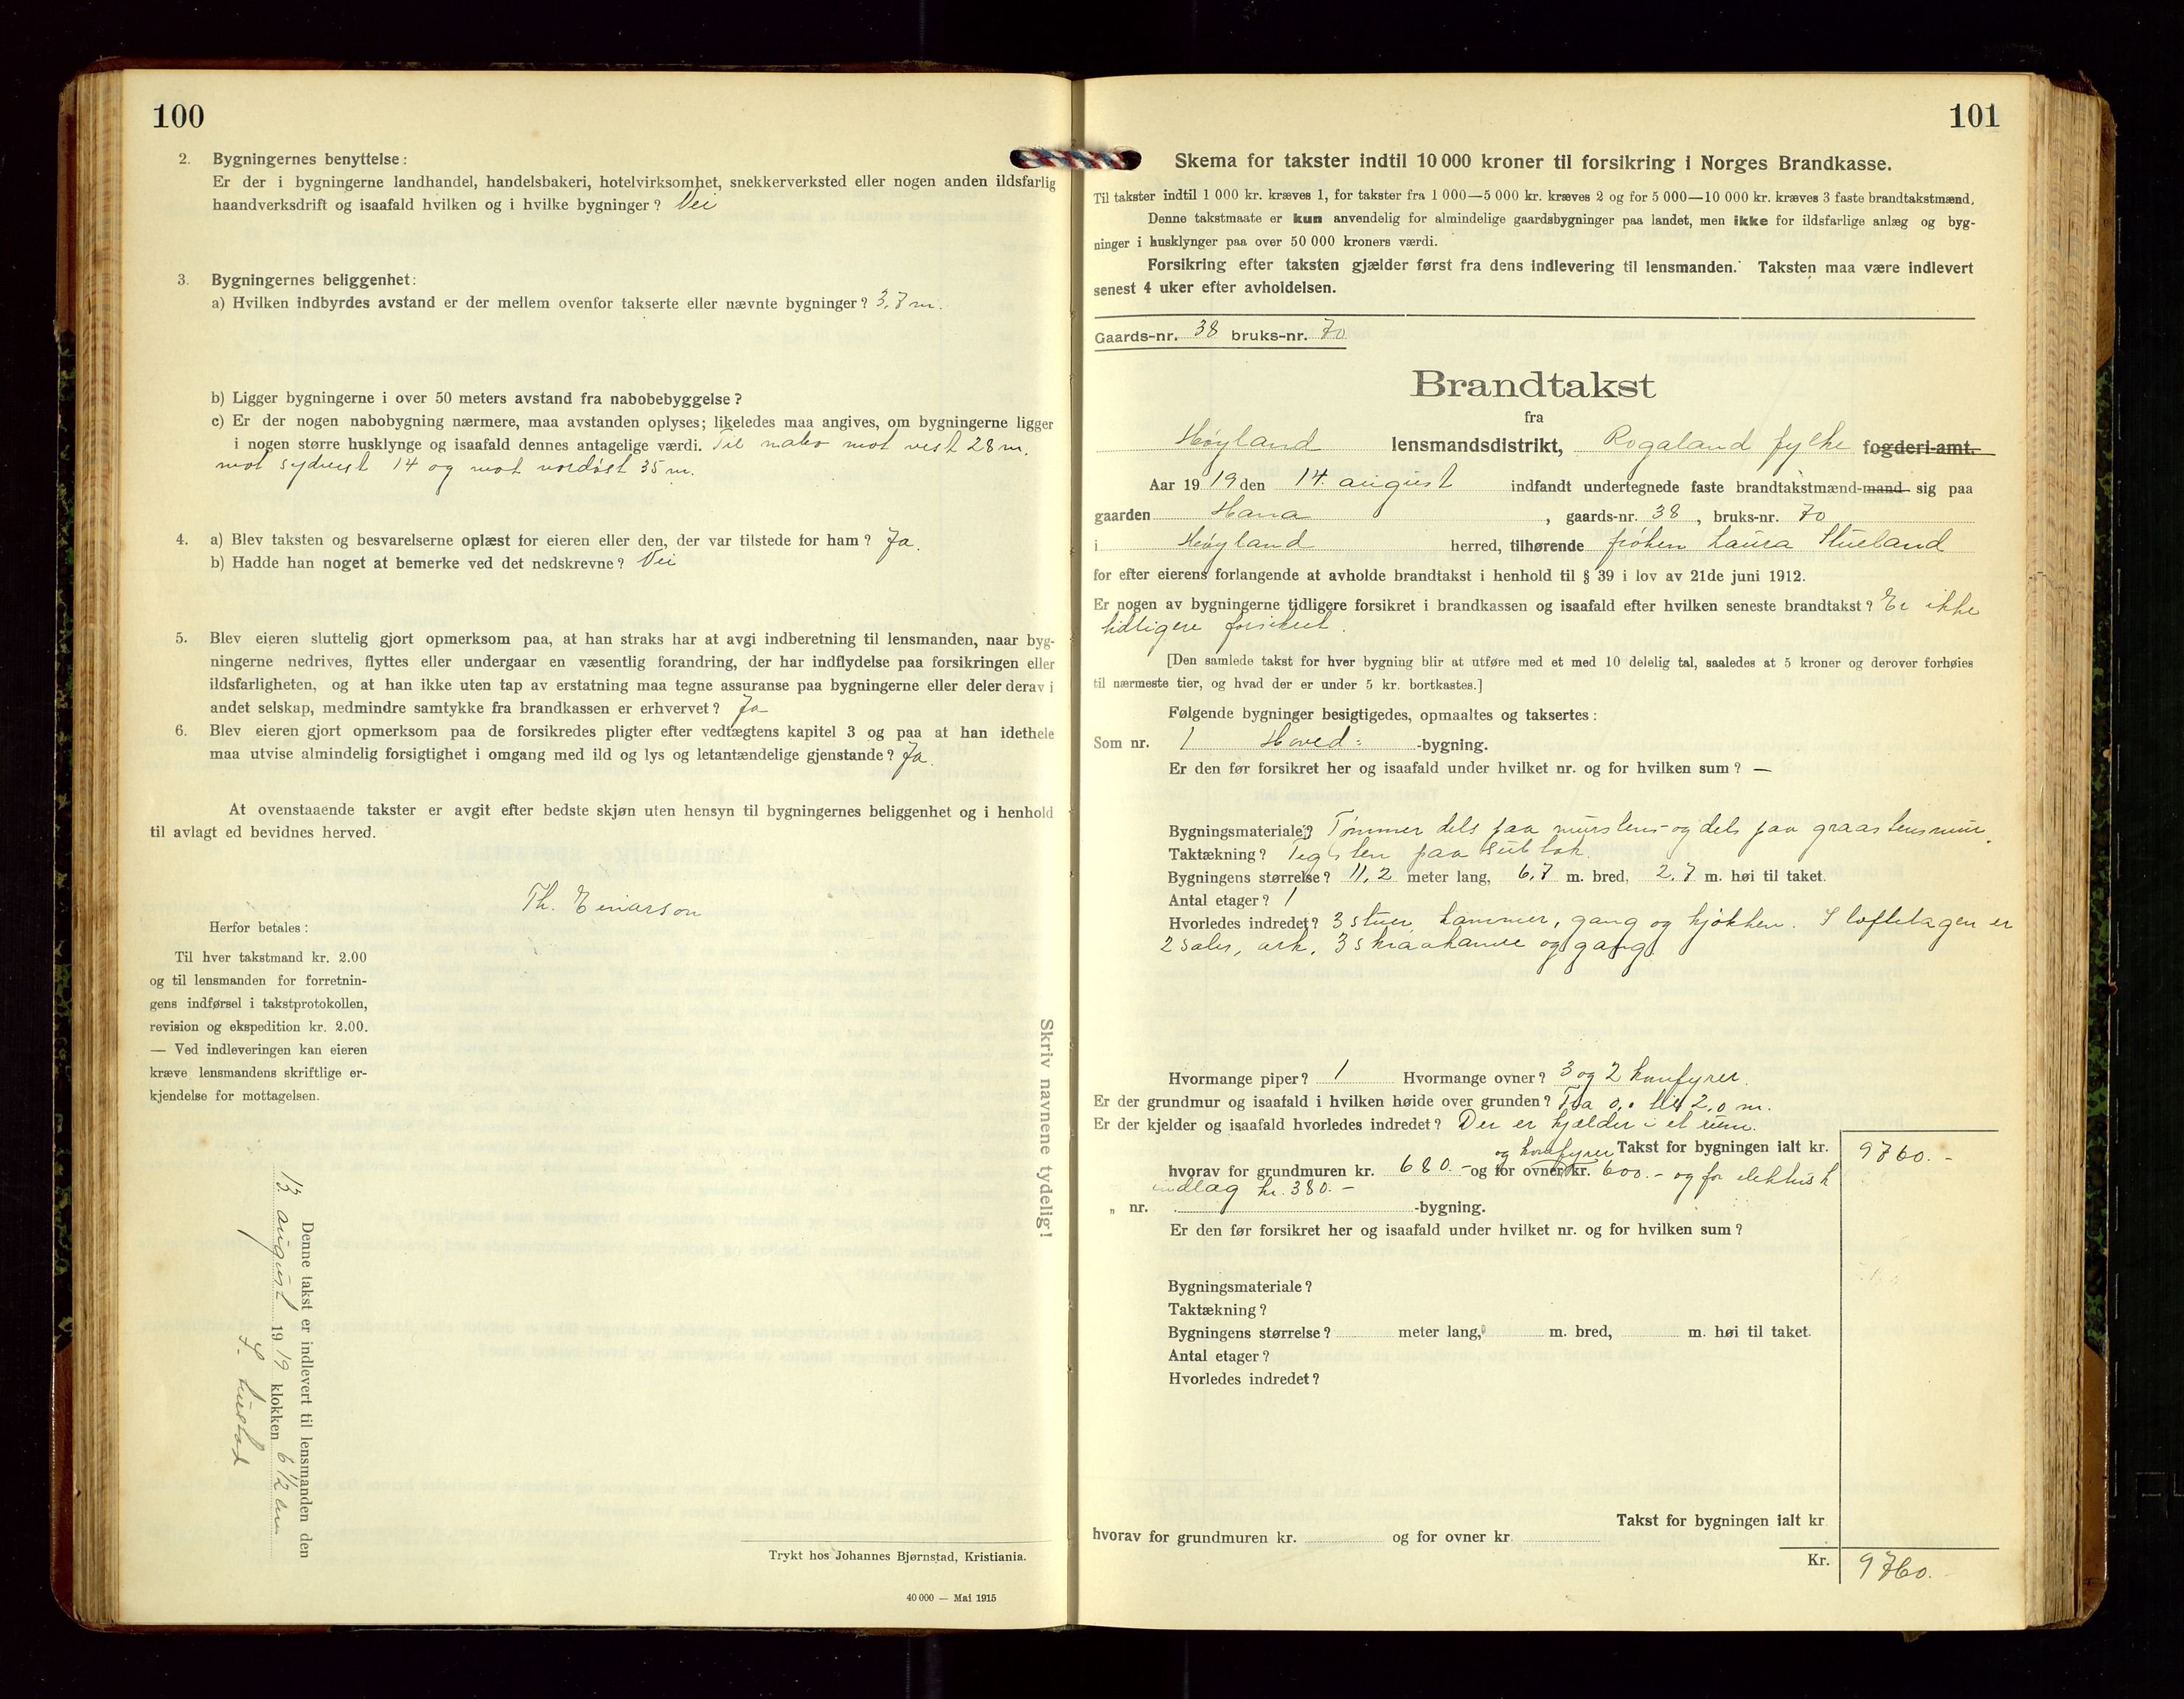 100
2. Bygningernes benyttelse:
Er der i bygningerne landhandel, handelsbakeri, hotelvirksomhet, snekkerverksted eller nogen anden ildsfarlig
haandverksdrift og isaafald hvilken og i hvilke bygninger? Nei
3. Bygningernes beliggenhet:
a) Hvilken indbyrdes avstand er der mellem ovenfor takserte eller nævnte bygninger? 3,7 m.
b) Ligger bygningerne i over 50 meters avstand fra nabobebyggelse?
c) Er der nogen nabobygning nærmere, maa avstanden oplyses; likeledes maa angives, om bygningerne ligger
i nogen større husklynge og isaafald dennes antagelige værdi. Til nabo mot vest 28 m.
mot sydvest 14 og mot nordøst 35 m.
4. a) Blev taksten og besvarelserne oplæst for eieren eller den, der var tilstede for ham? Ja.
b) Hadde han noget at bemerke ved det nedskrevne? Nei
5. Blev eieren sluttelig gjort opmerksom paa, at han straks har at avgi indberetning til lensmanden, naar byg-
ningerne nedrives, flyttes eller undergaar en væsentlig forandring, der har indflydelse paa forsikringen eller
ildsfarligheten, og at han ikke uten tap av erstatning maa tegne assuranse paa bygningerne eller deler derav i
andet selskap, medmindre samtykke fra brandkassen er erhvervet? Ja
6. Blev eieren gjort opmerksom paa de forsikredes pligter efter vedtægtens kapitel 3 og paa at han idethele
maa utvise almindelig forsigtighet i omgang med ild og lys og letantændelige gjenstande? Ja.
At ovenstaaende takster er avgit efter bedste skjøn uten hensyn til bygningernes beliggenhet og i henhold
til avlagt ed bevidnes herved.
Th. Einarson
Herfor betales:
Til hver takstmand kr. 2.00
og til lensmanden for forretnin-
gens indførsel i takstprotokollen,
revision og ekspedition kr. 2.00.
— Ved indleveringen kan eieren
kræve lensmandens skriftlige er-
kjendelse for mottagelsen.
Skriv navnene tydelig!
Denne takst er indlevert til lensmanden den
13. august 1919 klokken 6 1/2
Trykt hos Johannes Bjørnstad, Kristiania.
40 000 — Mai 1915
101
Skema for takster indtil 10 000 kroner til forsikring i Norges Brandkasse.
Til takster indtil 1 000 kr. kræves 1, for takster fra 1 000—5 000 kr. kræves 2 og for 5 000—10 000 kr. kræves 3 faste brandtakstmænd.
Denne takstmaate er kun anvendelig for almindelige gaardsbygninger paa landet, men ikke for ildsfarlige anlæg og byg-
ninger i husklynger paa over 50 000 kroners værdi.
Forsikring efter taksten gjælder først fra dens indlevering til lensmanden. Taksten maa være indlevert
senest 4 uker efter avholdelsen.
Gaards-nr. 38 bruks-nr. 70
Brandtakst
fra
Høyland lensmandsdistrikt, Rogaland fylke fogderi-amt.
Aar 1919 den 14. august indfandt undertegnede faste brandtakstmænd-mand sig paa
gaarden Hana, gaards-nr. 38, bruks-nr. 70
i Høyland herred, tilhørende frøken Laura Stueland
for efter eierens forlangende at avholde brandtakst i henhold til § 39 i lov av 21de juni 1912.
Er nogen av bygningerne tidligere forsikret i brandkassen og isaafald efter hvilken seneste brandtakst? Er ikke
tidligere forsikret.
[Den samlede takst for hver bygning blir at utføre med et med 10 delelig tal, saaledes at 5 kroner og derover forhøies
til nærmeste tier, og hvad der er under 5 kr. bortkastes.]
Følgende bygninger besigtigedes, opmaaltes og taksertes:
Som nr. 1 Hoved- -bygning.
Er den før forsikret her og isaafald under hvilket nr. og for hvilken sum? —
Bygningsmateriale? Tømmer dels paa murstens- og dels paa graastensmur.
Taktækning? Tegsten paa sutak.
Bygningens størrelse? 11,2 meter lang, 6,7 m. bred, 2,7 m. høi til taket.
Antal etager? 1
Hvorledes indredet? 3 stuer, kammer, gang og kjøkken. I loftetagen er
2 saler, ark, 3 skraakamre og gang.
Hvormange piper? 1 Hvormange ovner? 3 og 2 komfyrer.
Er der grundmur og isaafald i hvilken høide over grunden? Fra 0,1 til 2,0 m.
Er der kjelder og isaafald hvorledes indredet? Der er kjælder i et rum.
og komfyrer Takst for bygningen ialt kr. 9760.-
hvorav for grundmuren kr. 680.- og for ovner kr. 600.- og for elektrisk
indlag kr. 380.-
„ nr. -bygning.
Er den før forsikret her og isaafald under hvilket nr. og for hvilken sum?
Bygningsmateriale?
Taktækning?
Bygningens størrelse? meter lang, m. bred, m. høi til taket.
Antal etager?
Hvorledes indredet?
Takst for bygningen ialt kr
hvorav for grundmuren kr. og for ovner kr.
Kr. 9760.-